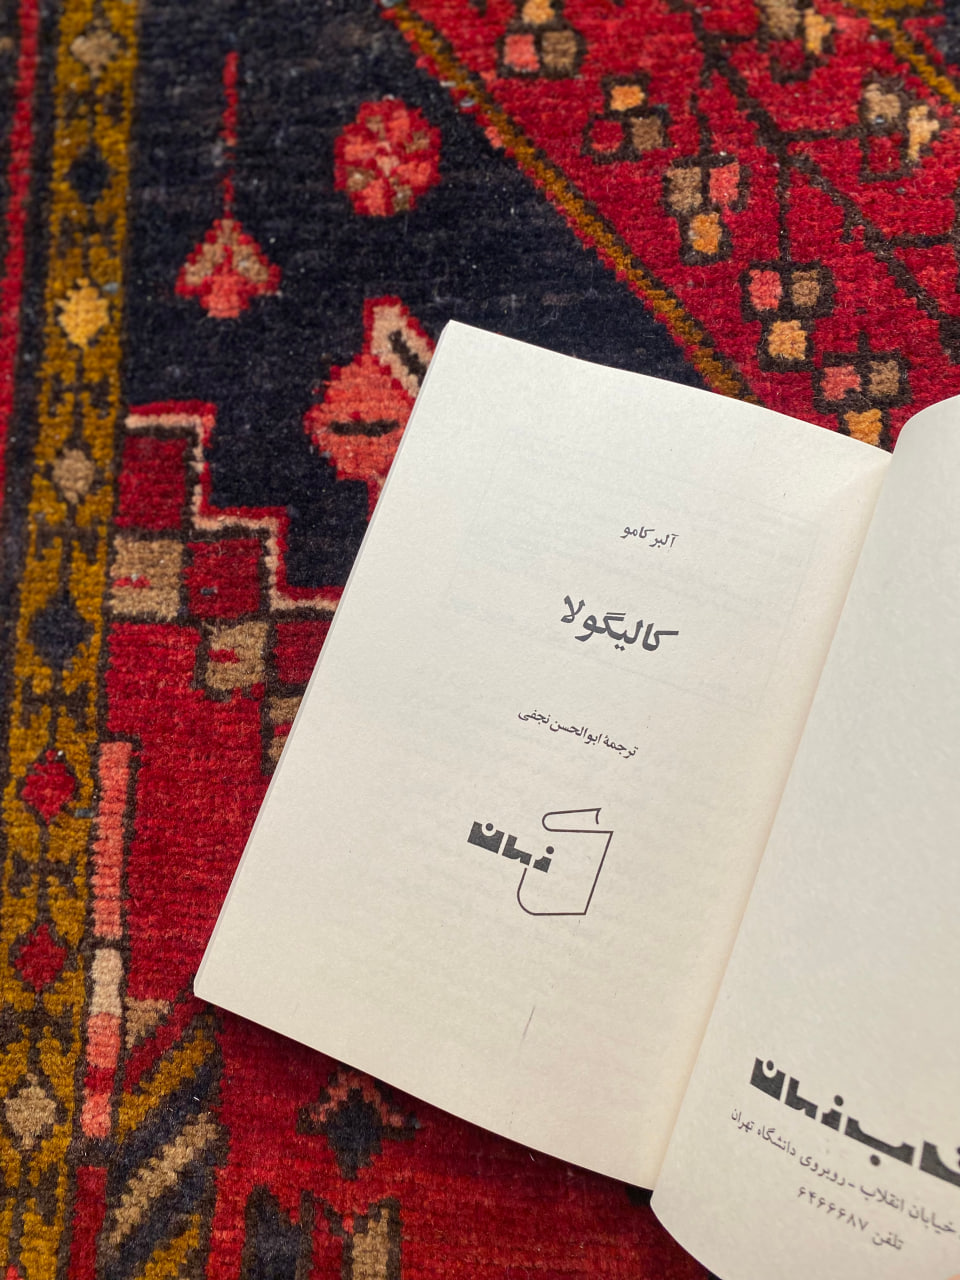 آلبر کامو
کالیگولا
ترجمهٔ ابوالحسن نجفی
زمان
زمان
خیابان انقلاب - روبروی دانشگاه تهران
تلفن ۶۴۶۶۶۸۷